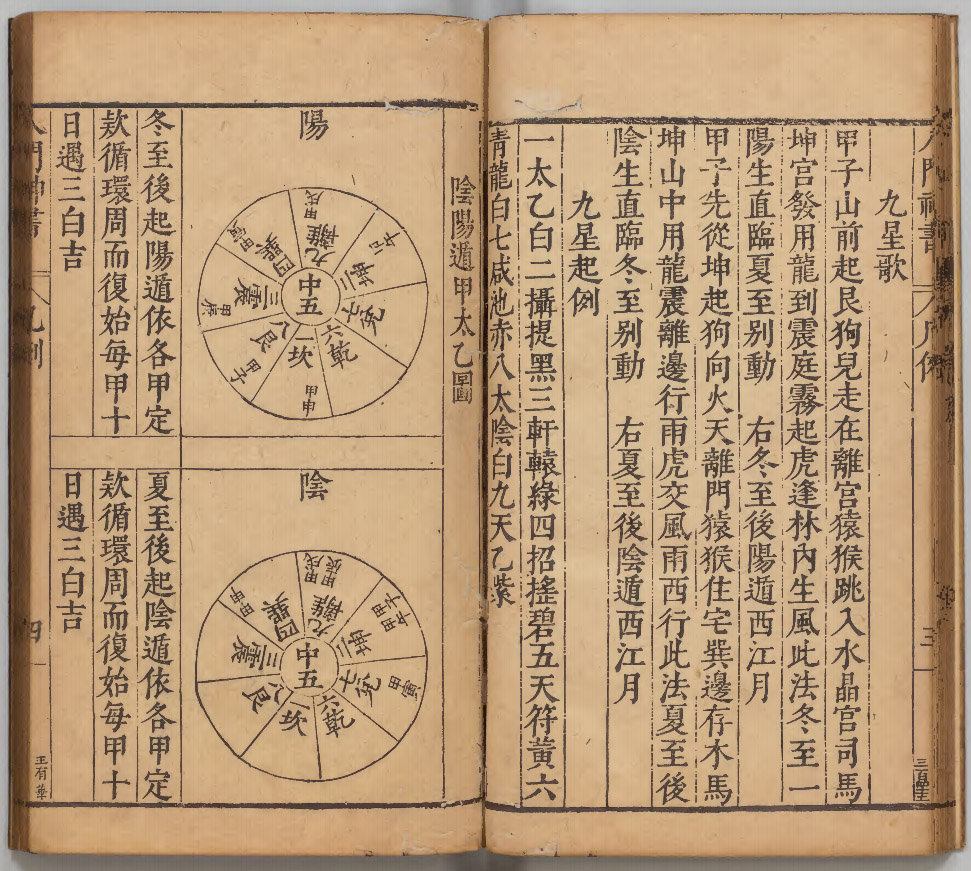 九星歌
甲子山前起艮狗兒走在離宮猿猴跳入水晶宮司馬
坤宮發用龍到震庭霧起虎逢林內生風此法冬至一
陽生直臨夏至別動　右冬至後陽遁西江月
甲子先從坤起狗向火天離門猿猴住宅巽邊存木馬
坤山中用龍震離邊行雨虎交風雨西行此法夏至後
陰生直臨冬至別動　右夏至後陰遁西江月
九星起例
一太乙白二攝提黑三軒轅綠四招搖碧五天符黃六
青龍白七咸池赤八太陰白九天乙紫
陰陽遁甲太乙圖
陽
中五
離九
甲戌
坤二
兌七
乾六
坎一
甲申
艮八
甲子
震三
甲辰
巽四
甲寅
冬至後起陽遁依各甲定
欵循環周而復始每甲十
日遇三白吉
陰
中五
離九
甲戌
甲辰
坤二
甲子
兌七
甲寅
乾六
坎一
艮八
震三
巽四
甲申
夏至後起陰遁依各甲定
欵循環周而復始每甲十
日遇三白吉
四
王有華